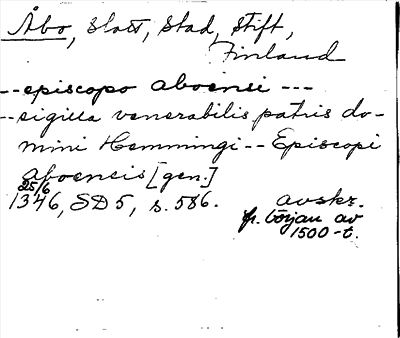 Åbo, slott, stad, stift,
Finland
-- episcopo aboensi ---
-- sigilla venerabilis patris do-
mini Hemmingi -- Episcopi
aboensis [gen.]
25/6
1346, SD 5, s. 586. avskr.
fr. början av
1500-t.